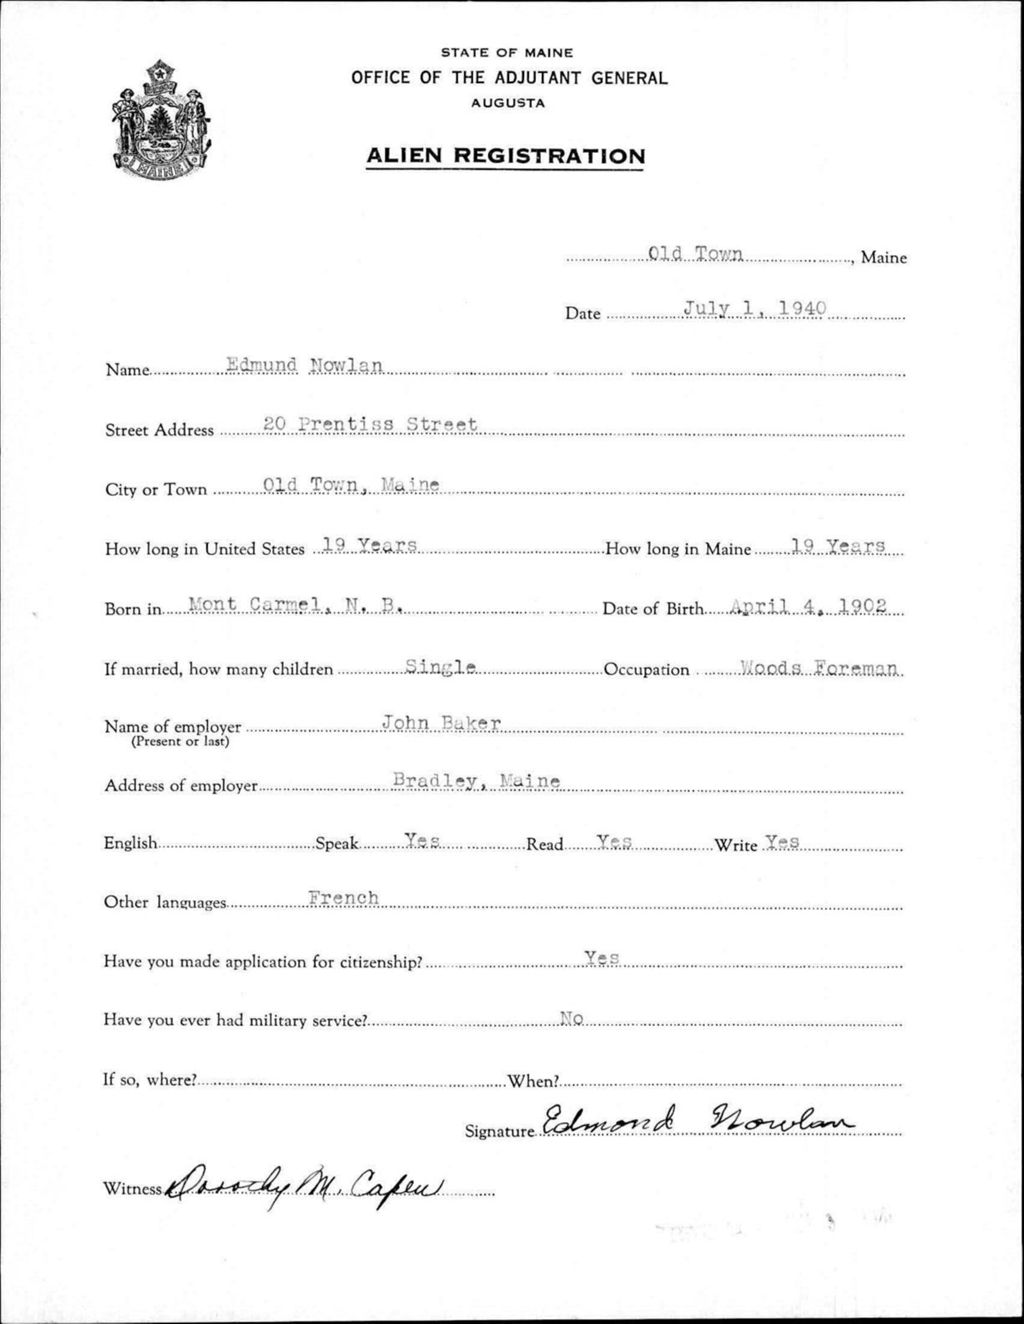 STATE OF MAINE
OFFICE OF THE ADJUTANT GENERAL
AUGUSTA
ALIEN REGISTRATION
MAINE
Old Town, Maine
Date July 1, 1940
Name Edmund Nowlan
Street Address 20 Prentiss Street
City or Town Old Town, Maine
How long in United States 19 Years How long in Maine 19 Years
Born in Mont Carmel, N. B. Date of Birth April 4, 1902
If married, how many children Single Occupation Woods Foreman
Name of employer John Baker
(Present or last)
Address of employer Bradley, Maine
English Speak Yes Read Yes Write Yes
Other languages French
Have you made application for citizenship? Yes
Have you ever had military service? No
If so, where? When?
Signature Edmond Nowlan
Witness Dorothy M. Capen